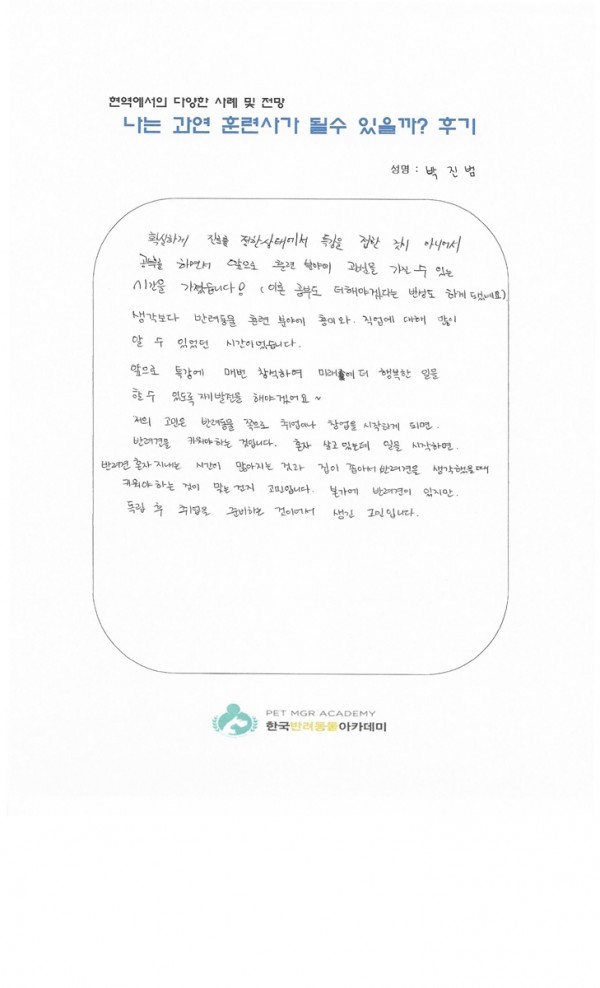 현역에서의 다양한 사례 및 전망
나는 과연 훈련사가 될수 있을까? 후기
성명 : 박 진 범
확실하게 진로를 정한상태에서 특강을 접한 것이 아니어서
공부를 하면서 앞으로 훈련 분야에 관심을 가질 수 있는
시간을 가졌습니다! (이론 공부도 더해야겠다는 반성도 하게 됐네요)
생각보다 반려동물 훈련 분야에 흥미와. 직업에 대해 많이
알 수 있었던 시간이었습니다.
앞으로 특강에 매번 참석하여 미래에 더 행복한 일을
할 수 있도록 자기발전을 해야겠어요~
저의 고민은 반려동물 쪽으로 취업이나 창업을 시작하게 되면.
반려견을 키워야하는 것입니다. 혼자 살고 있는데 일을 시작하면.
반려견 혼자 지내는 시간이 많아지는 것과 집이 좁아서 반려견을 생각했을때
키워야 하는 것이 맞는건지 고민입니다. 본가에 반려견이 있지만.
독립 후 취업을 준비하는 것이어서 생긴 고민입니다.
PET MGR ACADEMY
한국반려동물아카데미